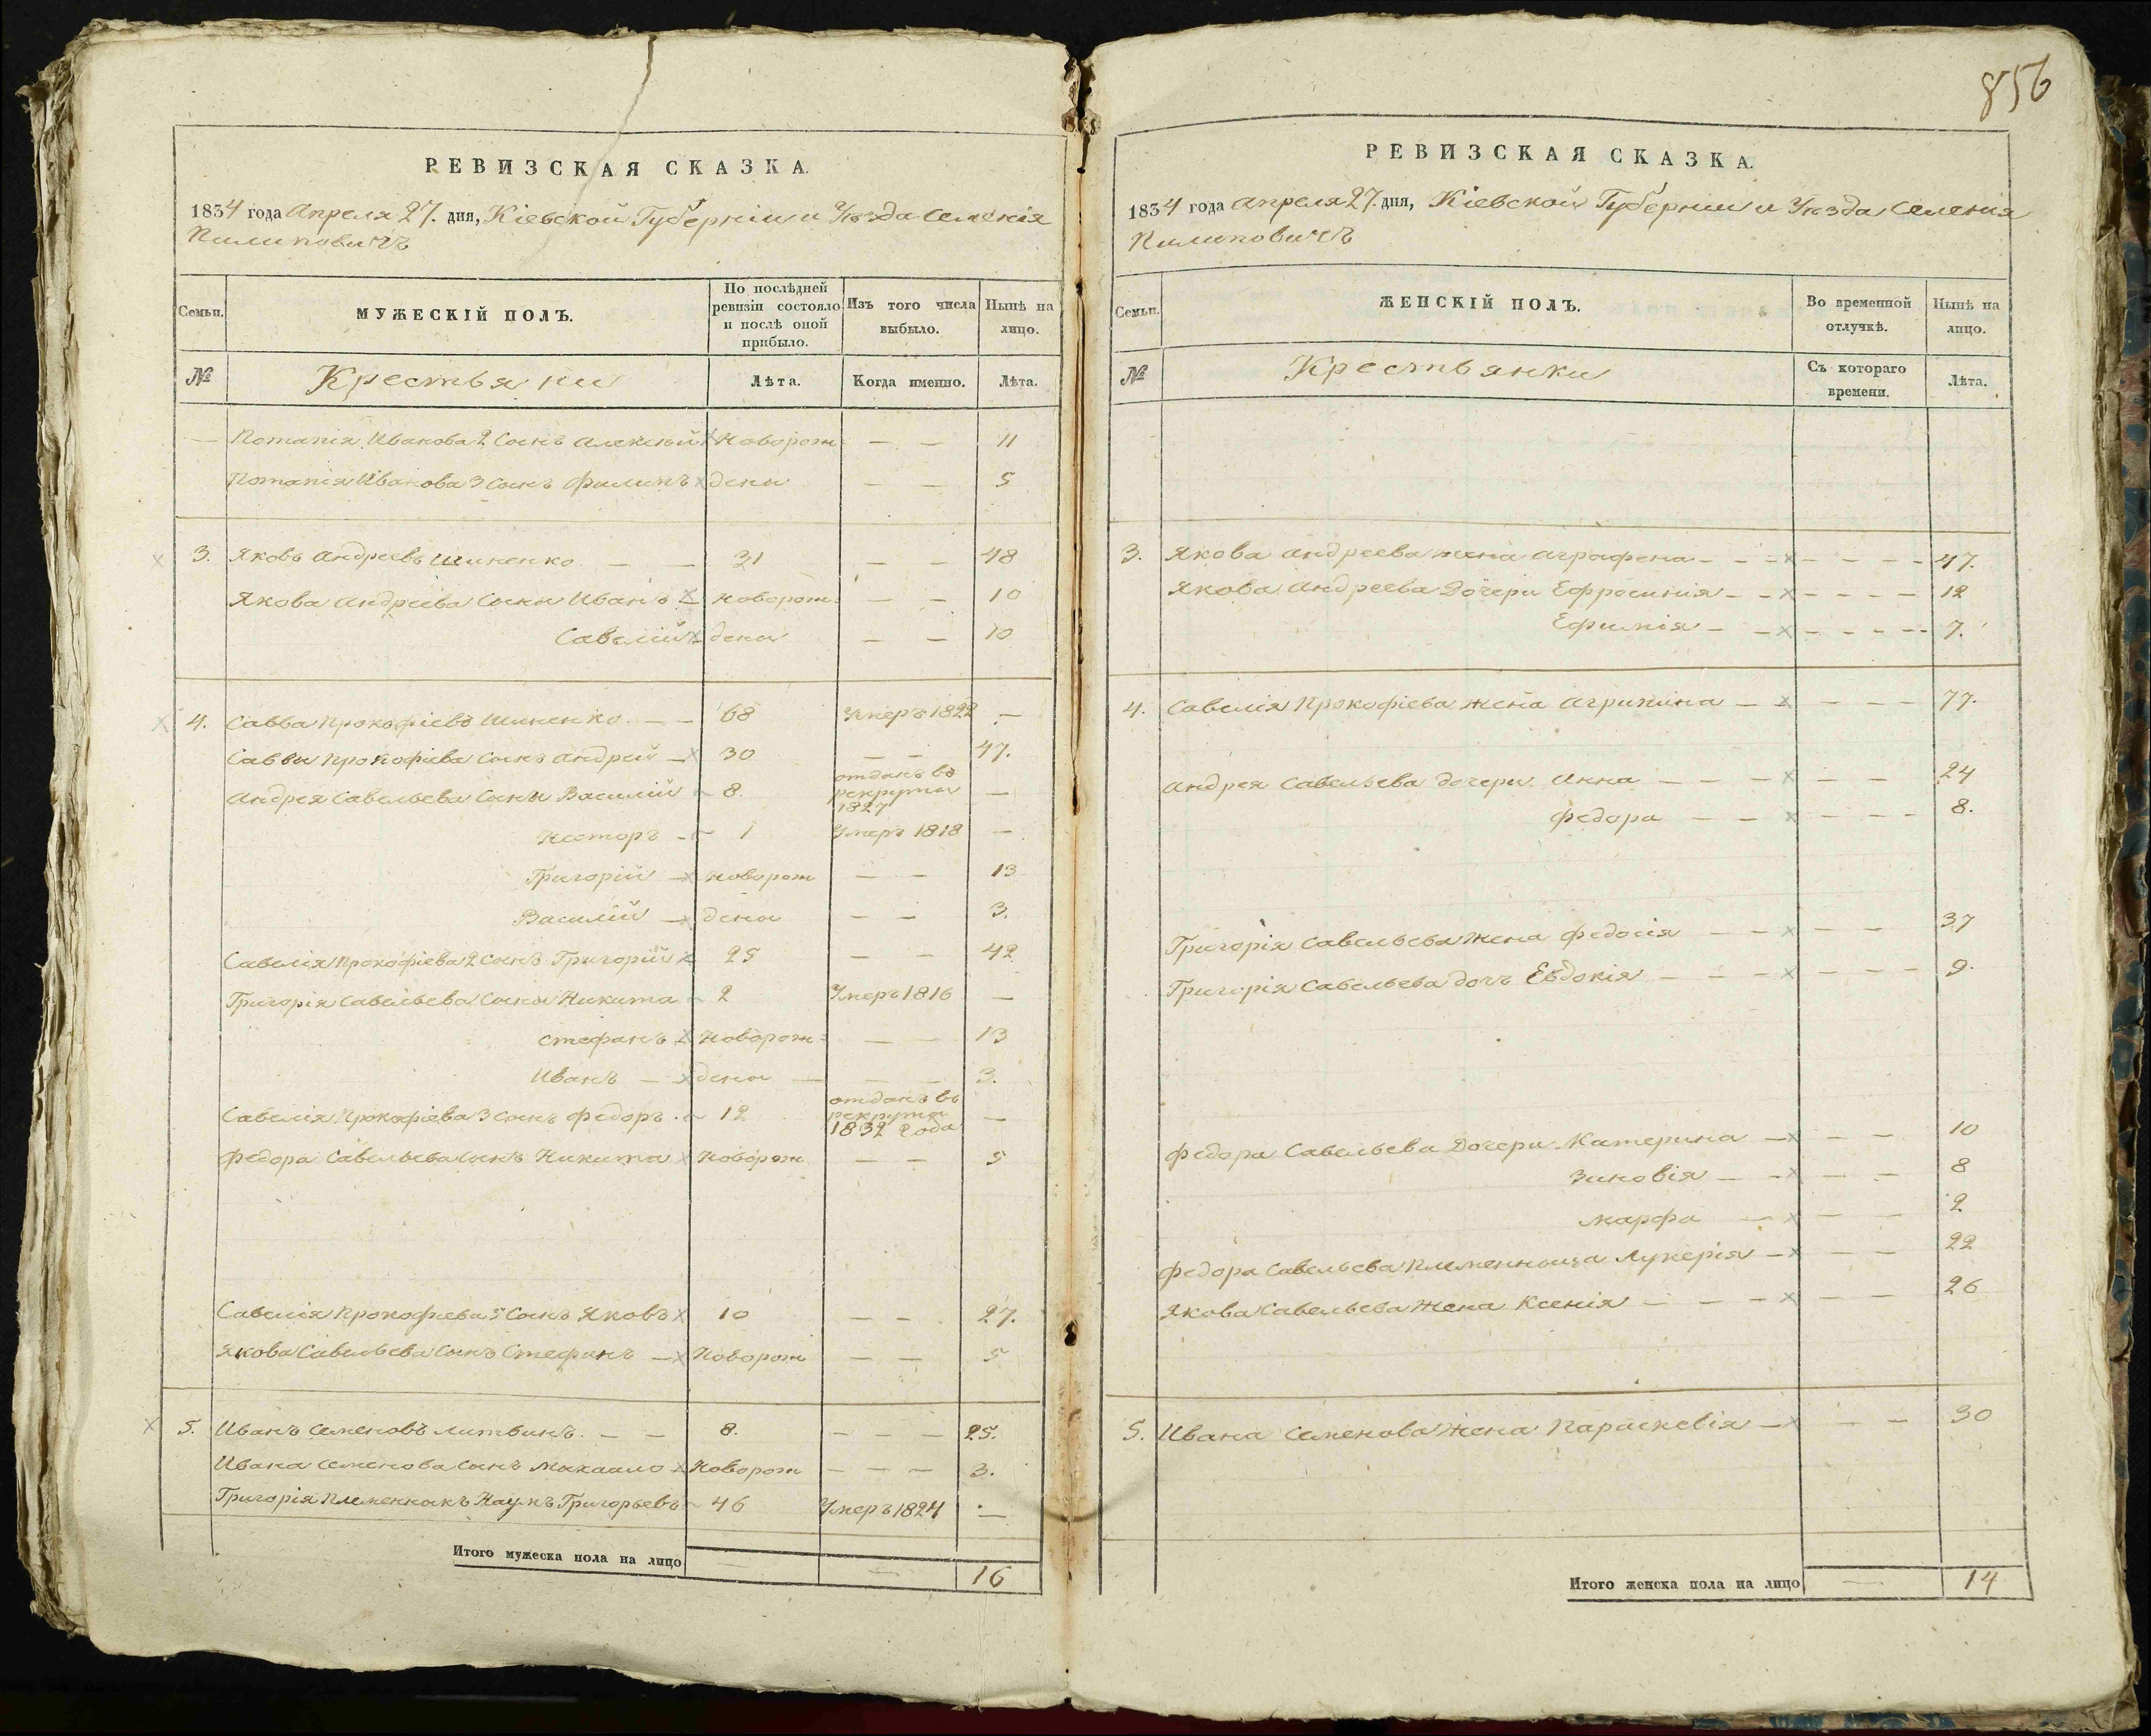 856
РЕВИЗСКАЯ СКАЗКА.
1834 года Апреля 27. дня, Кіевской Губерніи и Уѣзда Селенія
Пилиповичъ
Семьи.
МУЖЕСКІЙ ПОЛЪ.
По послѣдней
ревизіи состояло
и послѣ оной
прибыло.
Изъ того числа
выбыло.
Нынѣ на
лицо.
№
Крестьяни
Лѣта.
Когда именно.
Лѣта.
— Потапія Иванова 2 Сынъ Алексѣй Новорож — — 11
Потапія Иванова 3 Сынъ Филипъ дены — — 5
3. Яковъ Андреевъ Шиненко — — 31 — — 48
Якова Андреева Сыны Иванъ новорож — — 10
Савелій дены — — 10
4. Савва Прокофіевъ Шиненко — — 68 Умеръ 1822 —
Саввы Прокофіева Сынъ Андрей — 30 — — 47.
Андрея Савельева Сыны Василій 8. отданъ въ
рекруты —
1827
Несторъ — 1 Умеръ 1818 —
Григорій — новорож — — 13
Василій — дены — — 3.
Савелія Прокофіева 2 Сынъ Григорій 25 — — 42
Григорія Савельева Сыны Никита 2 Умеръ 1816 —
Стефанъ Новорож — — 13
Иванъ — дены — — — 3.
Савелія Прокофіева 3 Сынъ Федоръ 12 отданъ въ
рекруты —
1832 года
Федора Савельева Сынъ Никита Новорож — — 5
Савелія Прокофіева 5 Сынъ Яковъ 10 — — 27.
Якова Савельева Сынъ Стефанъ — Новорож — — 5
5. Иванъ Семеновъ Литвинъ. — — 8. — — — 25.
Ивана Семенова Сынъ Михаило Новорож — — — 3.
Григорія Племенникъ Наумъ Григорьевъ 46 Умеръ 1824 —
Итого мужеска пола на лицо — — 16
РЕВИЗСКАЯ СКАЗКА.
1834 года Апреля 27. дня, Кіевской Губерніи и Уѣзда Селенія
Пилиповичъ
Семьи.
ЖЕНСКІЙ ПОЛЪ.
Во временной
отлучкѣ.
Нынѣ на
лицо.
№
Крестьянки
Съ котораго
времени.
Лѣта.
3. Якова Андреева жена Аграфена — — — — — — — 47.
Якова Андреева Дочери Ефросинія — — — — — — 12
Ефимія — — — — — — 7.
4. Савелія Прокофіева жена Агрипина — — — — — 77.
Андрея Савельева дочери Анна — — — — — 24
Федора — — — — — 8.
Григорія Савельева жена Федосія — — — — 37
Григорія Савельева дочь Евдокія — — — — — — 9.
Федора Савельева Дочери Катерина — — — 10
Зиновія — — — — 8
Марфа — — — 2
Федора Савельева племенница Лукерія — — — 22
Якова Савельева Жена Ксенія — — — — — 26
5. Ивана Семенова жена Параскевія — — — 30
Итого женска пола на лицо — 14